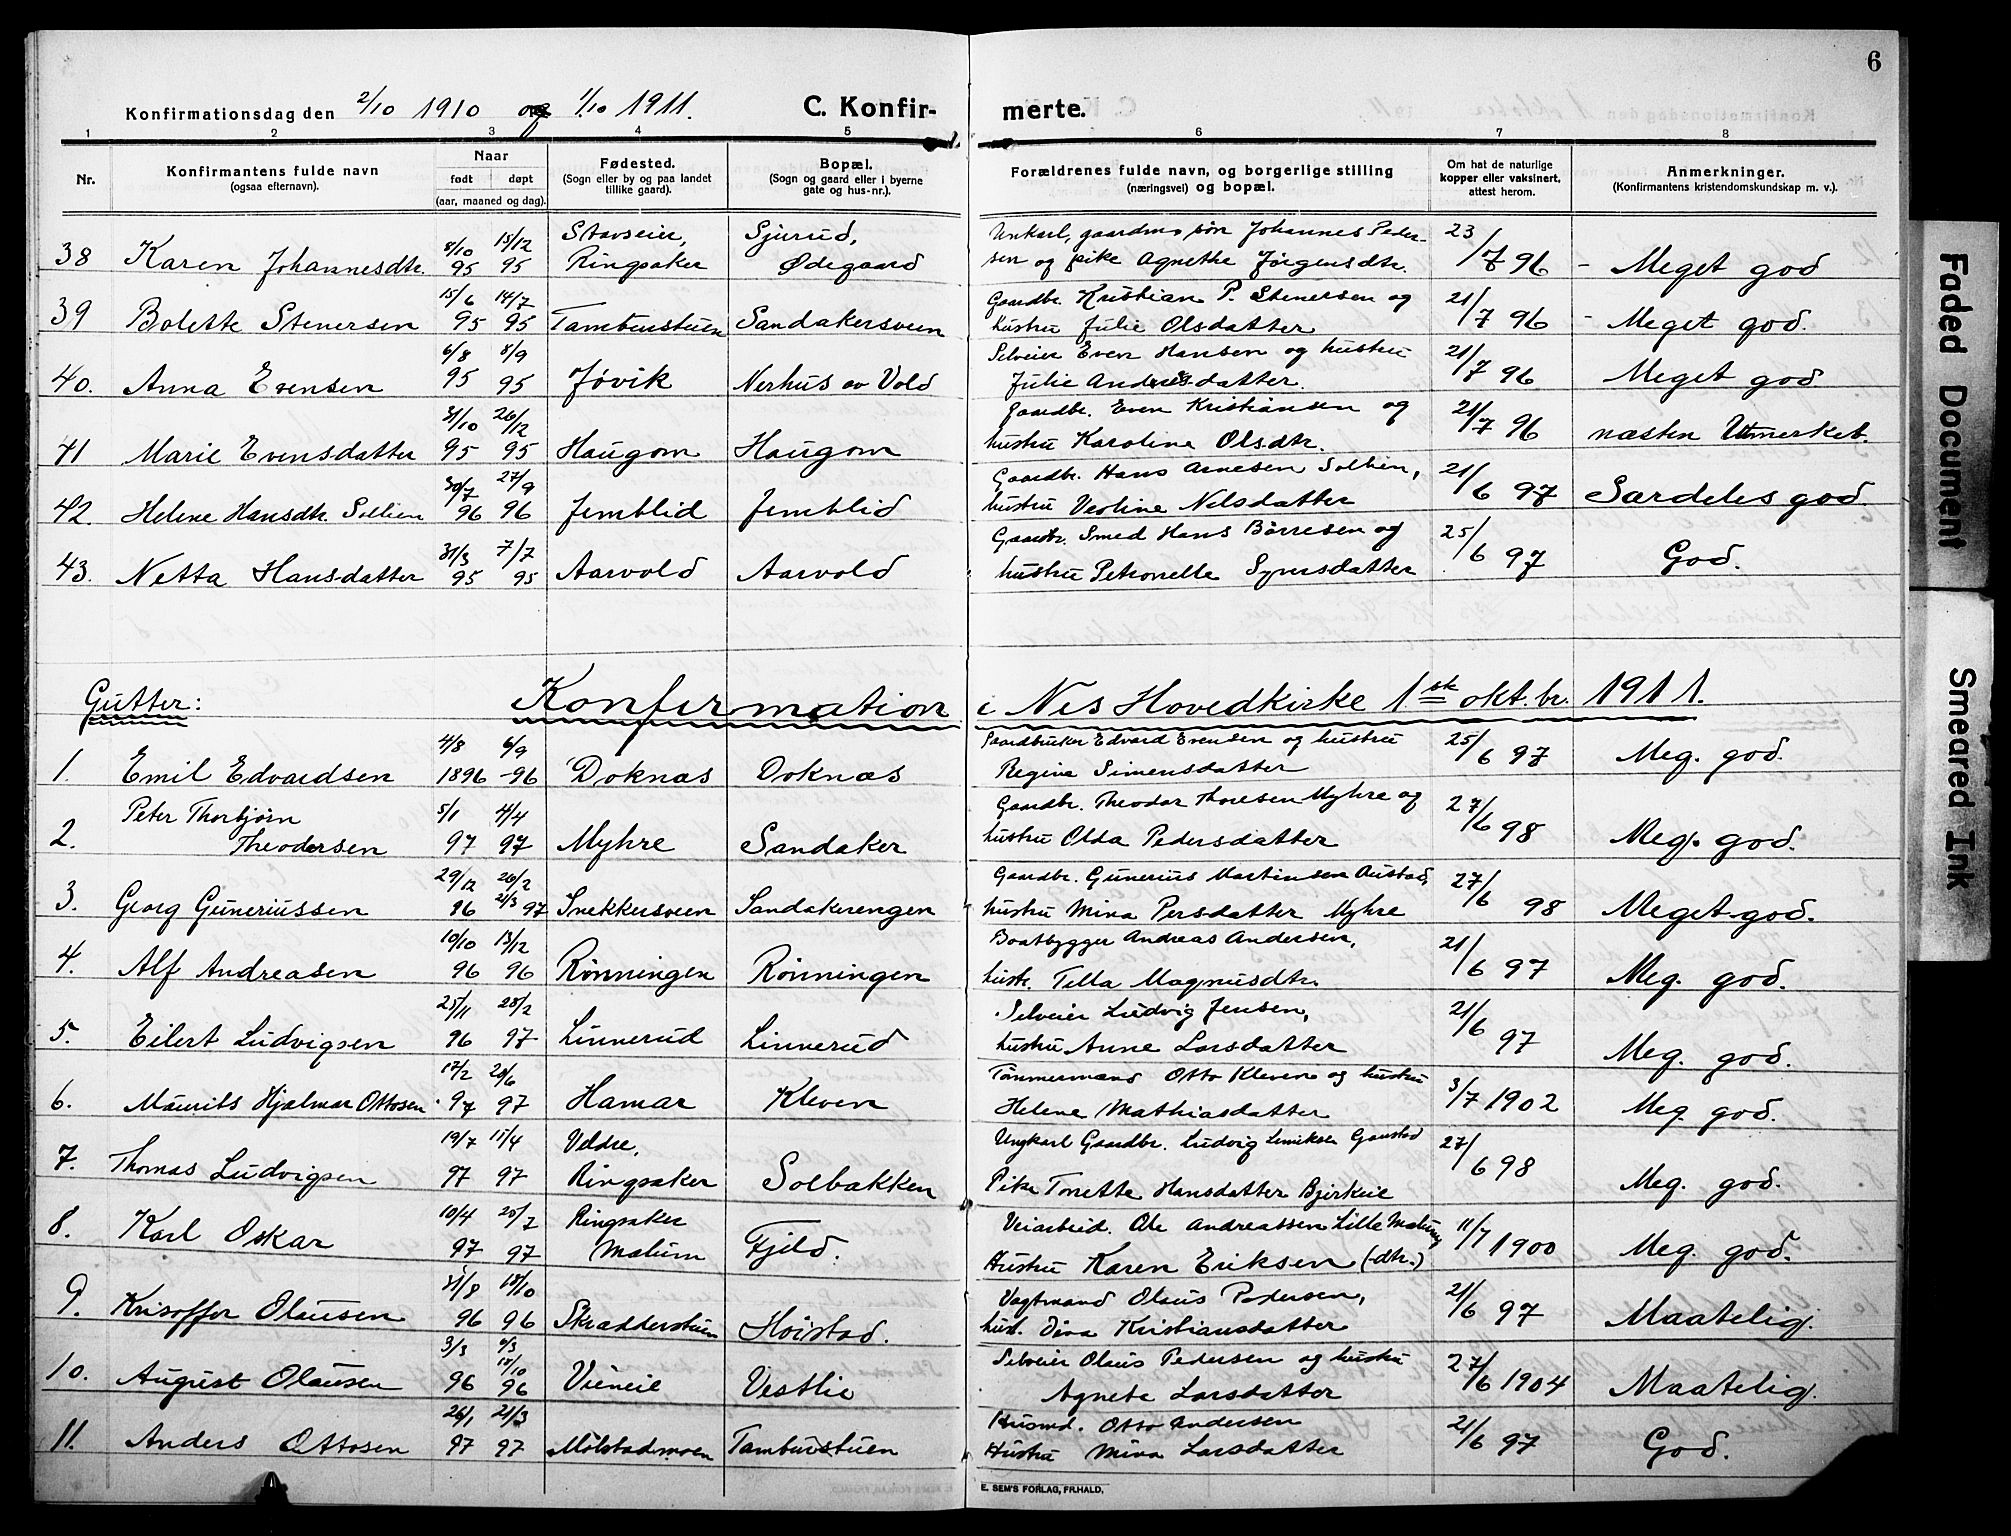 6
Konfirmationsdag den 2/10 1910 og 1/10 1911. C. Konfirmerte.
1 2 3 4 5 6 7 8
Nr. Konfirmantens fulde navn (ogsaa efternavn). Naar født døpt (aar, maaned og dag). Fødested. (Sogn eller by og paa landet tillike gaard). Bopæl. (Sogn og gaard eller i byerne gate og hus-nr.). Forældrenes fulde navn, og borgerlige stilling (næringsvei) og bopæl. Om hat de naturlige kopper eller vaksinert, attest herom. Anmerkninger. (Konfirmantens kristendomskundskap m. v.).
8/10 15/12 Stavseier, Sjurud, Unkarl, gaardm. søn Johannes Peder- 23
38 Karen Johannesdtr. 95 95 Ringsaker Ødegaard sen og pike Agnethe Jørgensdtr. /7 96 – Meget god
15/6 14/7 Gaardbr. Kristian P. Stenersen og 21
39 Bolette Stenersen 95 95 Tamburstuen Sandakersveen hustru Julie Olsdatter /7 96 – Meget god.
6/8 8/9 Selveier Even Hansen og hustru 21
40. Anna Evensen 95 95 Jøvik Nerhus av Vold Julie Andersdatter. /7 96 Meget god
31/10 26/12 Gaardbr. Even Kristiansen og 21
41 Marie Evensdatter 95 95 Haugom Haugom hustru Karoline Olsdtr. /7 96 næsten Utmerket.
30/7 27/9 Gaardbr. Hans Arnesen Sollien, 21
42. Helene Hansdtr. Sollien 96 96 Jemblid Jemblid hustru Verline Nelsdatter /6 97 Særdeles god.
31/3 7/7 Gaardbr. Smed Hans Børresen og 25
43. Netta Hansdatter 95 95 Aarvold Aarvold hustru Petronelle Syversdatter /6 97 God.
Gutter: Konfirmation i Nes Hovedkirke 1ste okt.br. 1911.
4/8 6/9 Gaardbruker Edvard Evensen og hustru 25
1. Emil Edvardsen 1896 -96 Doknæs Doknæs Regine Simensdatter /6 97 Meg. god.
Peter Thorbjørn 5/1 4/4 Gaardbr. Theodor Thoresen Myhre og 27
2. Theodorsen 97 97 Myhre Sandaker hustru Olda Pedersdatter /6 98 Meg. god.
29/12 26/2 Gaardbr. Gunerius Martinsen Austad, 27
3. Georg Guneriussen 96 21/3 97 Snekkersveen Sandakerengen hustru Mina Persdatter Myhre /6 98 Meget god.
10/10 13/12 Baatbygger Andreas Andersen, 21
4. Alf Andreasen 96 96 Rønningen Rønningen hustr. Tilla Magnusdtr. /6 97 Meg. god.
25/11 28/2 Selveier Ludvig Jensen, 21
5. Eilert Ludvigsen 96 97 Linnerud Linnerud hustru Anne Larsdatter /6 97 Meg. god.
17/2 20/6 Tømmermand Otto Kleven og hustru
6. Maurits Hjalmar Ottosen 97 97 Hamar Kleven Helene Mathiasdatter 3/7 1902 Meg god.
19/7 15/4 Veldre, Ungkarl Gaardbr. Ludvig Gaustad 27
7. Thomas Ludvigsen 97 97 Ringsaker Solbakken Pike Tonette Hansdatter Bjerkeie /6 98 Meg. god.
10/4 25/7 Ringsaker Veiarbeid. Ole Andreassen Lille Malung
8. Karl Oskar 97 97 Malum Fjeld. Hustru Karen Eriksen (-dtr.) 11/7 1900 Meg. god.
31/8 18/10 Vogtmand Olaus Pedersen, 21
9. Krisoffer Olausen 96 96 Skrædderstuen Høistad. hust. Dina Kristiansdatter /6 97 Maatelig.
3/3 18/10 Selveier Olaus Pedersen og hustru 27
10. August Olausen 96 96 Vieneie Vestlie Agnete Larsdatter /6 1904 Maatelig.
26/1 21/3 Husmd. Otto Andersen 21
11. Anders Ottosen 97 97 Molstadmoen Tamburstuen Hustru Mina Larsdatter /6 97 God.
E. SEM'S FORLAG, FR.HALD.
Faded Document
Smeared Ink